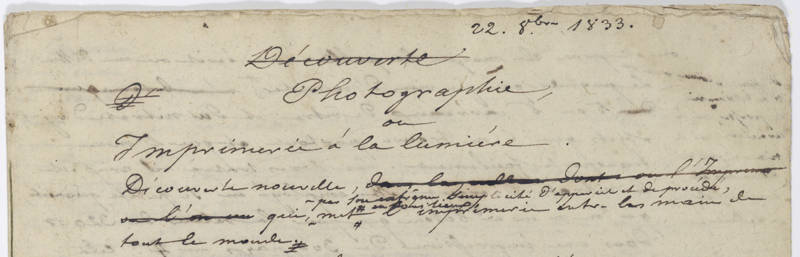 22. 8bre 1833.
Découverte
Photographie,
ou
Imprimerie à la lumière.
Découverte nouvelle, dans la ou l'Imprim
par son simplicité d'appareil et de procédés,
ou l'on qui, met l'imprimerie entre les main de
tout le monde.